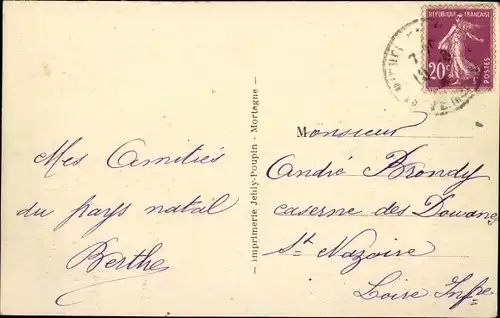 RÉPUBLIQUE FRANÇAISE
20c
POSTES
Mes Amitiés
du pays natal
Berthe
Imprimerie Jehly-Poupin - Mortagne
Monsieur
André Brondy
caserne des Douanes
St Nazaire
Loire Infre